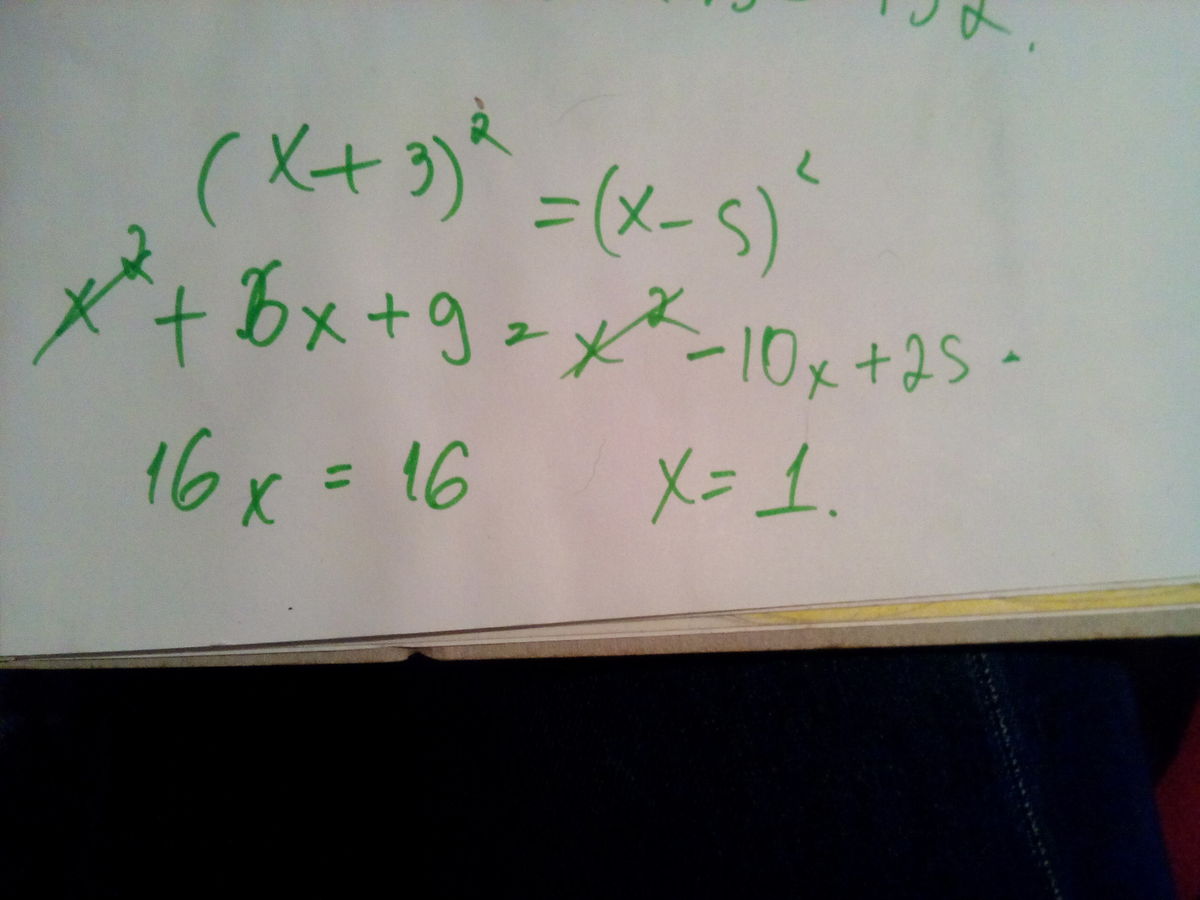 (x+3)² = (x-5)²
x² + 6x + 9 = x² - 10x + 25.
16x = 16 x = 1.